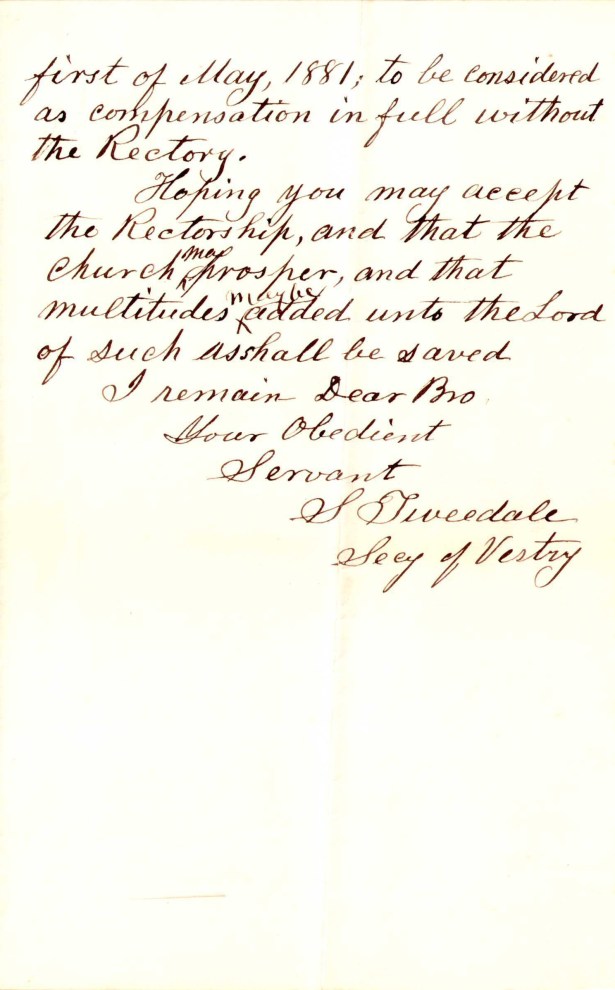 first of May, 1881; to be considered
as compensation in full without
the Rectory.
Hoping you may accept
the Rectorship, and that the
church may prosper, and that
multitudes may be added unto the Lord
of such as shall be saved
I remain Dear Bro
Your Obedient
Servant
S Tweedale
Secy of Vestry